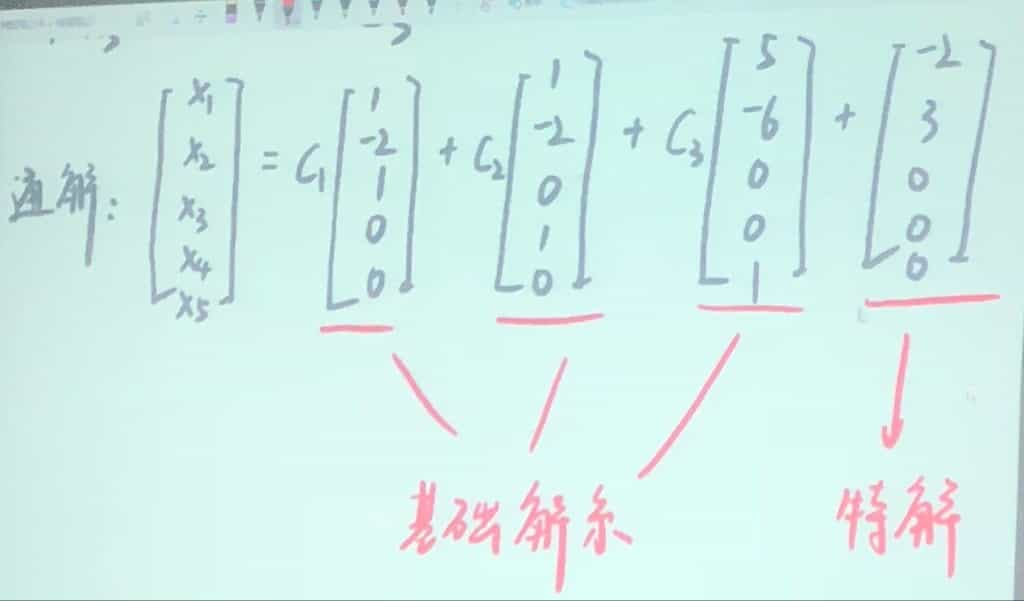 通解: [x₁ x₂ x₃ x₄ x₅] = C₁ [1 -2 1 0 0] + C₂ [1 -2 0 1 0] + C₃ [5 -6 0 0 1] + [-2 3 0 0 0]
基础解系 特解